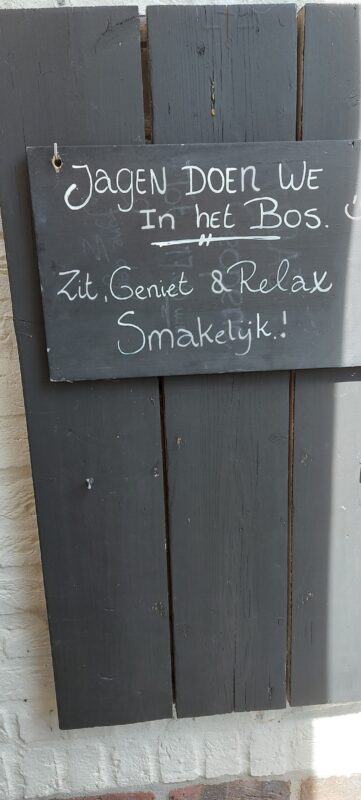 Jagen DOEN WE
In het Bos.
Zit, Geniet & Relax
Smakelijk.!